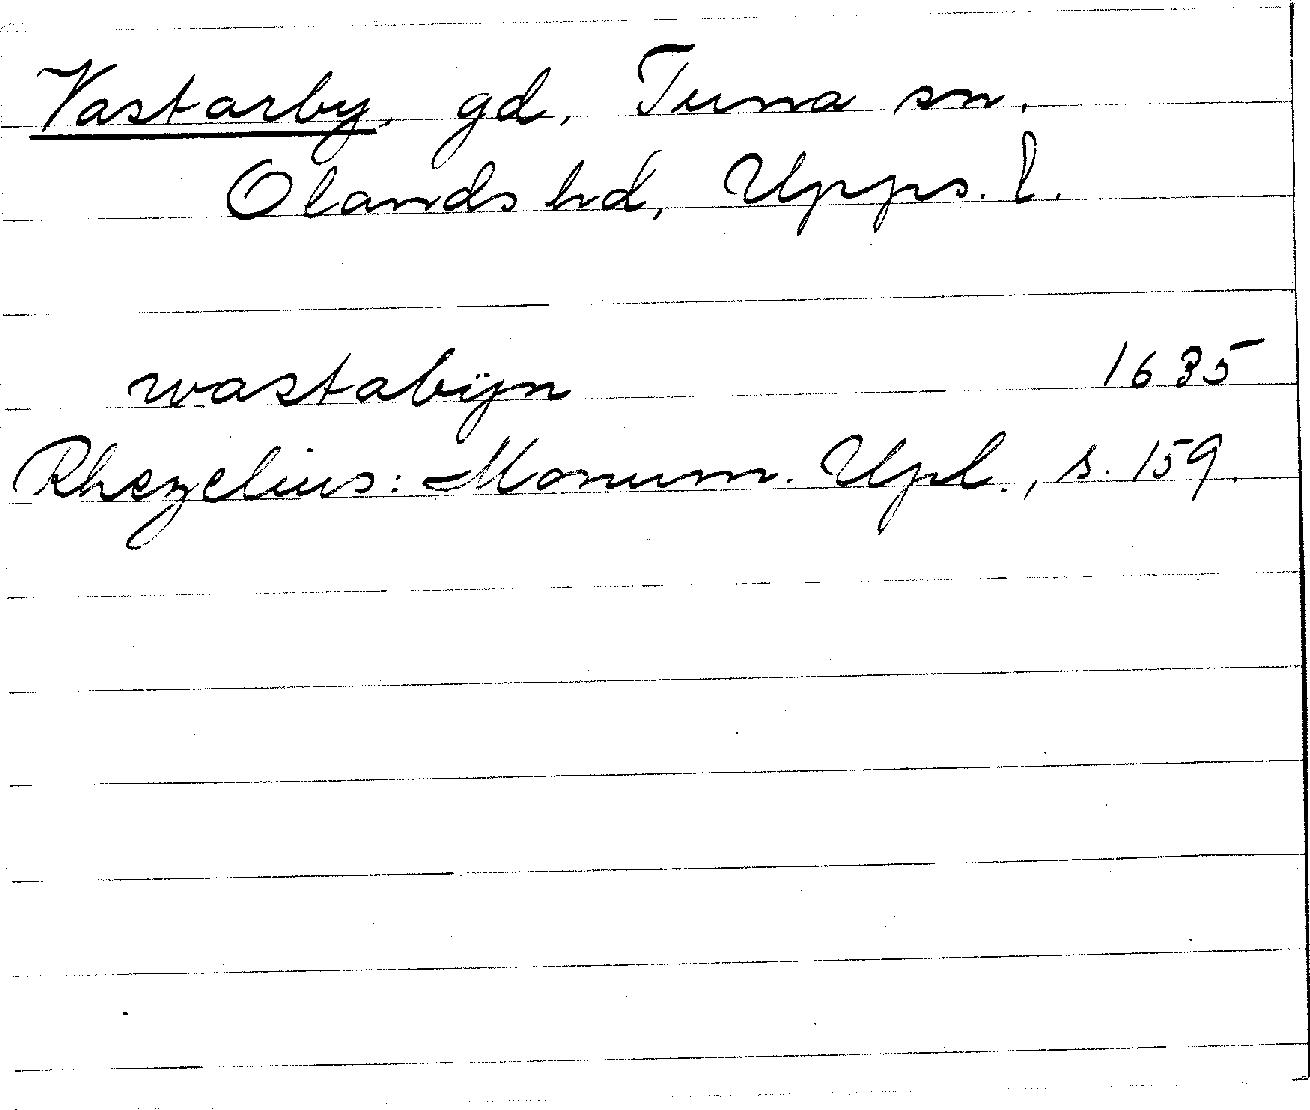 Vastarby, gd, Tuna sn.
Olands hd, Upps. l.
wastabÿn 1635
Rhezelius: Monum. Upl., s. 159.